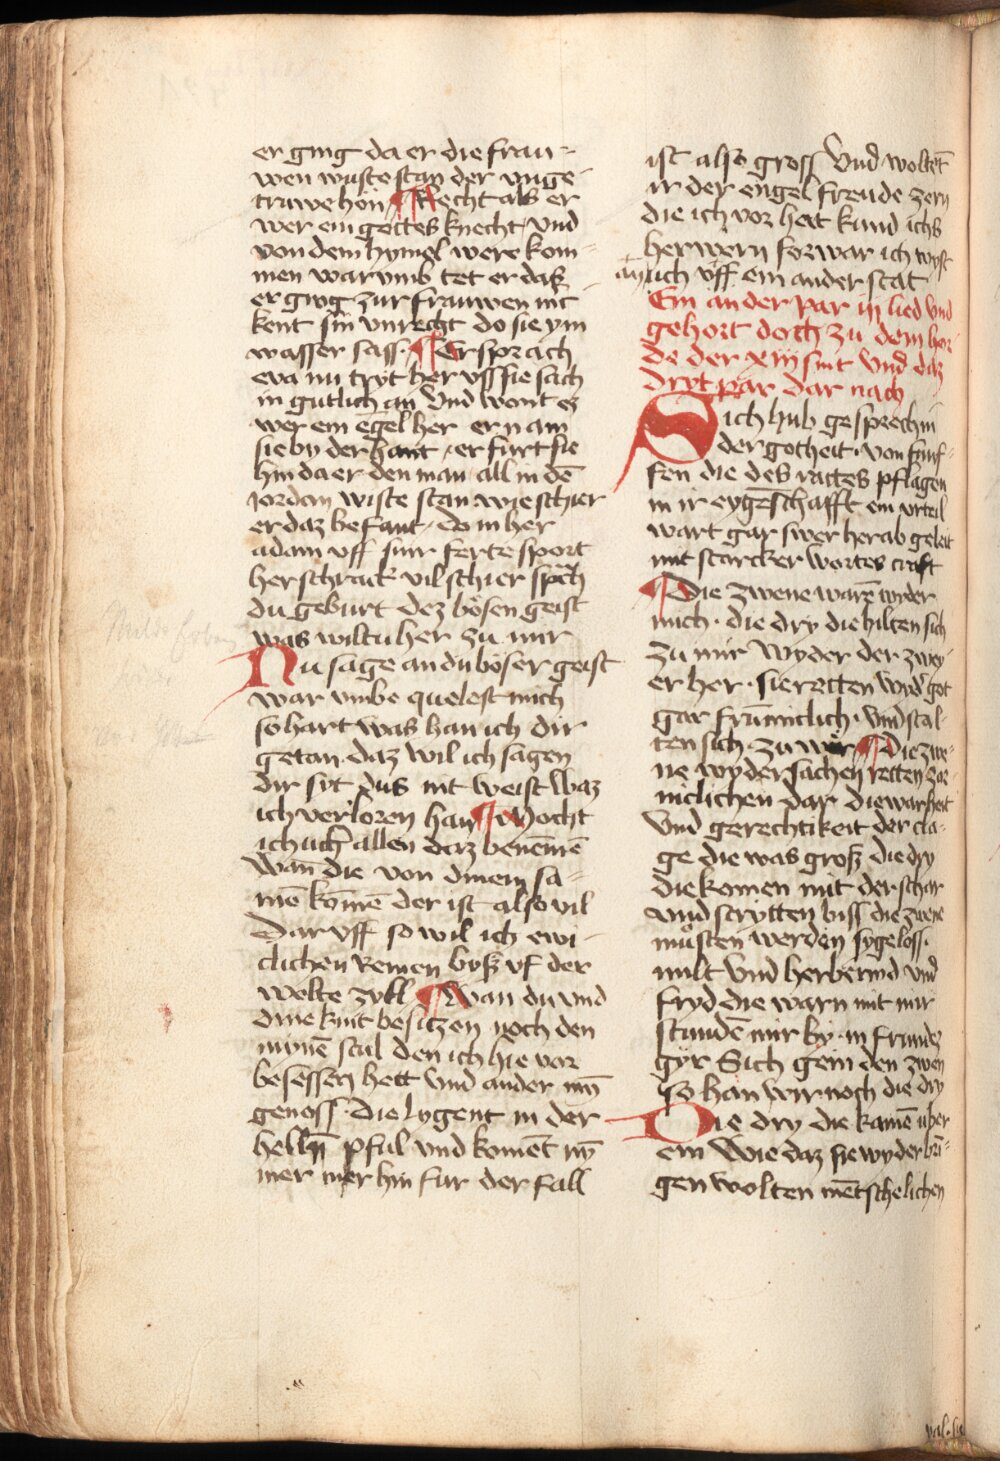 er ging da er die frau-
wen wuste stan der vnge-
truwe hön ¶ Recht als er
wer ein gottes knecht vnd
von dem hymel were kom-
men war vmb tet er daß
er ging zur frauwen nit
kent sin vnrecht do sie ym
wasser sass. ¶ Er sprach
eva nu tryt her vss sie sach
in gutlich an Vnd wont ez
wer ein egel her er nam
sie by der hant / er furt sie
hin da er den man all in dē
Jordan wiste stan wie schier
er daz befant / do in her
adam vff siner ferte sport
her schrack vil schier sprach
du geburt dez bösen geist
was wiltu her zu mir
Nu sage an du böser geist
war vmbe quelest mich
so hart was han ich dir
getan. daz wil ich sagen
dir sit dus nit weist Waz
ich verloren han ¶ Mocht
ich uch allen daz benemē
Wan die von dinem sa-
mē komē der ist also vil
Dar vff so wil ich ewi-
clichen Remen byß vf der
welte zykl ¶ Wan du vnd
dine kint besitzen noch den
mynē stul den ich hie vor
besessen hett Vnd ander min
genoss. Die lygent in der
hellē pful vnd komēt ny
mer mer hin fur der fall
ist also gross Vnd woltet
ir der engel freude zern
die ich vor hett kund ichs
her wern forwar ich wyst
an uch vff ein ander stat
Ein an der par iij lied vnd
gehort doch zu dem hor
de der xiij sint Vnd daz
dryt par dar nach
Sich hub gesprech in
der gotheit. von funf-
fen die des rattes pflagen
in ir eygēschafft ein vrteil
wart gar swer herab geleit
mit starcker wortes craft
¶ Die zwene warē wyder
mich. die dry die hilten sich
zu mir Wyder der zwey-
er her. sie retten wyd' got
gar frūntlich. vnd stal-
ten sich zu wer ¶ Die zwe-
ne wyder sachen retten zor-
niclichen dar die warheit
Vnd gerechtikeit der cla-
ge die was groß die dry
die komen mit der schar
vnd strytten biss die zwene
musten werden sygeloss.
milt Vnd herbermd vnd
fryd die warn mit mir
stundē mir by in frundes
gyr Sich gein den zwen
so han wir noch die dry
Die dry die kamē uber
ein Wie daz sie wyder bri-
gen wolten mētschelichen